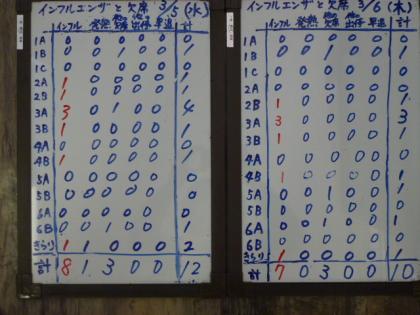 インフルエンザと欠席 3/5(水)
インフル 発熱 他の欠席 他の出停 早退 計
1A 0 0 0 0 0 0
1B 0 0 1 0 0 1
1C 0 0 0 0 0 0
2A 1 0 0 0 0 1
2B 1 0 0 0 0 1
3A 3 0 1 0 0 4
3B 1 0 0 0 0 1
4A 0 0 0 0 0 0
4B 1 0 0 0 0 1
5A 0 0 0 0 0 0
5B 0 0 0 0 0 0
6A 0 0 0 0 0 0
6B 0 0 1 0 0 1
きらり 1 1 0 0 0 2
計 8 1 3 0 0 12
インフルエンザと欠席 3/6(木)
インフル 発熱 他の欠席 他の出停 早退 計
1A 0 0 0 0 0 0
1B 0 0 1 0 0 1
1C 0 0 0 0 0 0
2A 0 0 0 0 0 0
2B 1 0 0 0 0 1
3A 3 0 0 0 0 3
3B 0 0 0 0 0 1
4A 0 0 0 0 0 0
4B 1 0 0 0 0 1
5A 0 0 1 0 0 1
5B 0 0 0 0 0 0
6A 0 0 1 0 0 1
6B 0 0 0 0 0 0
きらり 1 0 0 0 0 1
計 7 0 3 0 0 10